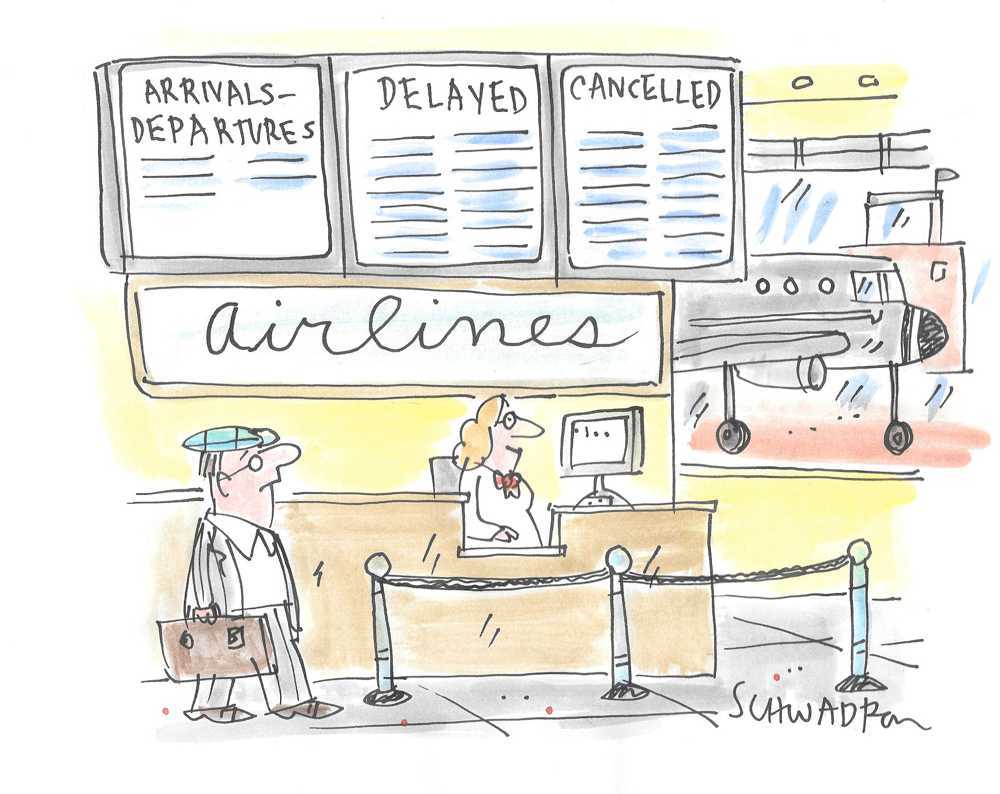 ARRIVALS-
DEPARTURES
DELAYED
CANCELLED
airlines
SCHWADRON